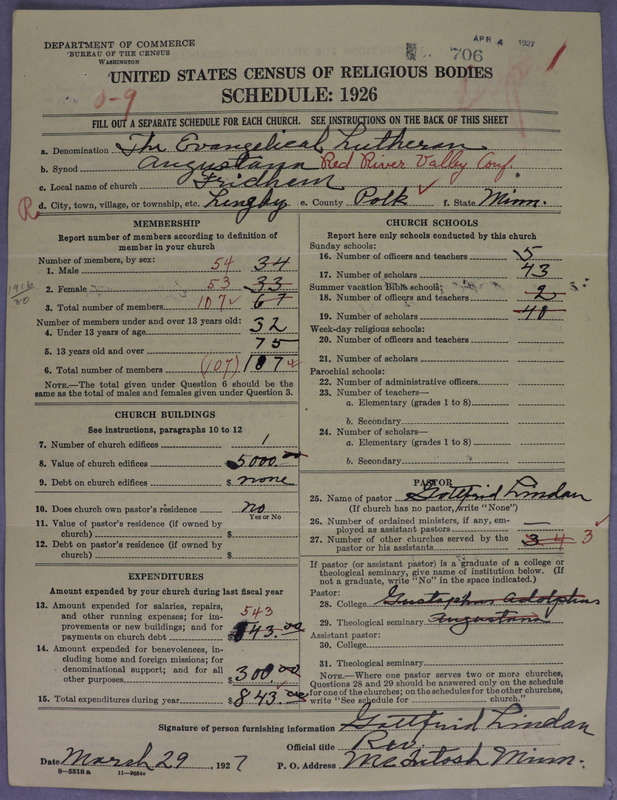 DEPARTMENT OF COMMERCE
BUREAU OF THE CENSUS
WASHINGTON
APR 4 1927
706
1
UNITED STATES CENSUS OF RELIGIOUS BODIES
0-9
SCHEDULE: 1926
FILL OUT A SEPARATE SCHEDULE FOR EACH CHURCH. SEE INSTRUCTIONS ON THE BACK OF THIS SHEET
a. Denomination The Evangelical Lutheran
b. Synod Augustana Red River Valley Conf.
c. Local name of church Fridhem
R d. City, town, village, or township, etc. Lingby e. County Polk ✓ f. State Minn.
MEMBERSHIP
Report number of members according to definition of member in your church
Number of members, by sex:
1. Male 54 34
2. Female 53 33
1916
3. Total number of members 107 ✓ 67
Number of members under and over 13 years old:
4. Under 13 years of age 32
5. 13 years old and over 75
6. Total number of members (107) 107
NOTE.—The total given under Question 6 should be the same as the total of males and females given under Question 3.
CHURCH BUILDINGS
See instructions, paragraphs 10 to 12
7. Number of church edifices 1
8. Value of church edifices $ 5000.00
9. Debt on church edifices $ none
10. Does church own pastor's residence no
Yes or No
11. Value of pastor's residence (if owned by church) $
12. Debt on pastor's residence (if owned by church) $
EXPENDITURES
Amount expended by your church during last fiscal year
13. Amount expended for salaries, repairs, and other running expenses; for improvements or new buildings; and for payments on church debt 543 $ 543.00
14. Amount expended for benevolences, including home and foreign missions; for denominational support; and for all other purposes $ 300.00
15. Total expenditures during year $ 843.00
CHURCH SCHOOLS
Report here only schools conducted by this church
Sunday schools:
16. Number of officers and teachers 5
17. Number of scholars 43
Summer vacation Bible schools:
18. Number of officers and teachers 2
19. Number of scholars 40
Week-day religious schools:
20. Number of officers and teachers
21. Number of scholars
Parochial schools:
22. Number of administrative officers
23. Number of teachers—
a. Elementary (grades 1 to 8)
b. Secondary
24. Number of scholars—
a. Elementary (grades 1 to 8)
b. Secondary
PASTOR
25. Name of pastor Gottfrid Lindan
(If church has no pastor, write "None")
26. Number of ordained ministers, if any, employed as assistant pastors —
27. Number of other churches served by the pastor or his assistants 3 4 3 ✓
If pastor (or assistant pastor) is a graduate of a college or theological seminary, give name of institution below. (If not a graduate, write "No" in the space indicated.)
Pastor:
28. College Gustaphus Adolphus
29. Theological seminary Augustana
Assistant pastor:
30. College
31. Theological seminary
NOTE.—Where one pastor serves two or more churches, Questions 28 and 29 should be answered only on the schedule for one of the churches; on the schedules for the other churches, write "See schedule for church."
Signature of person furnishing information Gottfrid Lindan
Official title Rev.
Date March 29, 1927 P. O. Address McIntosh Minn.
8—5518 a 11—9034